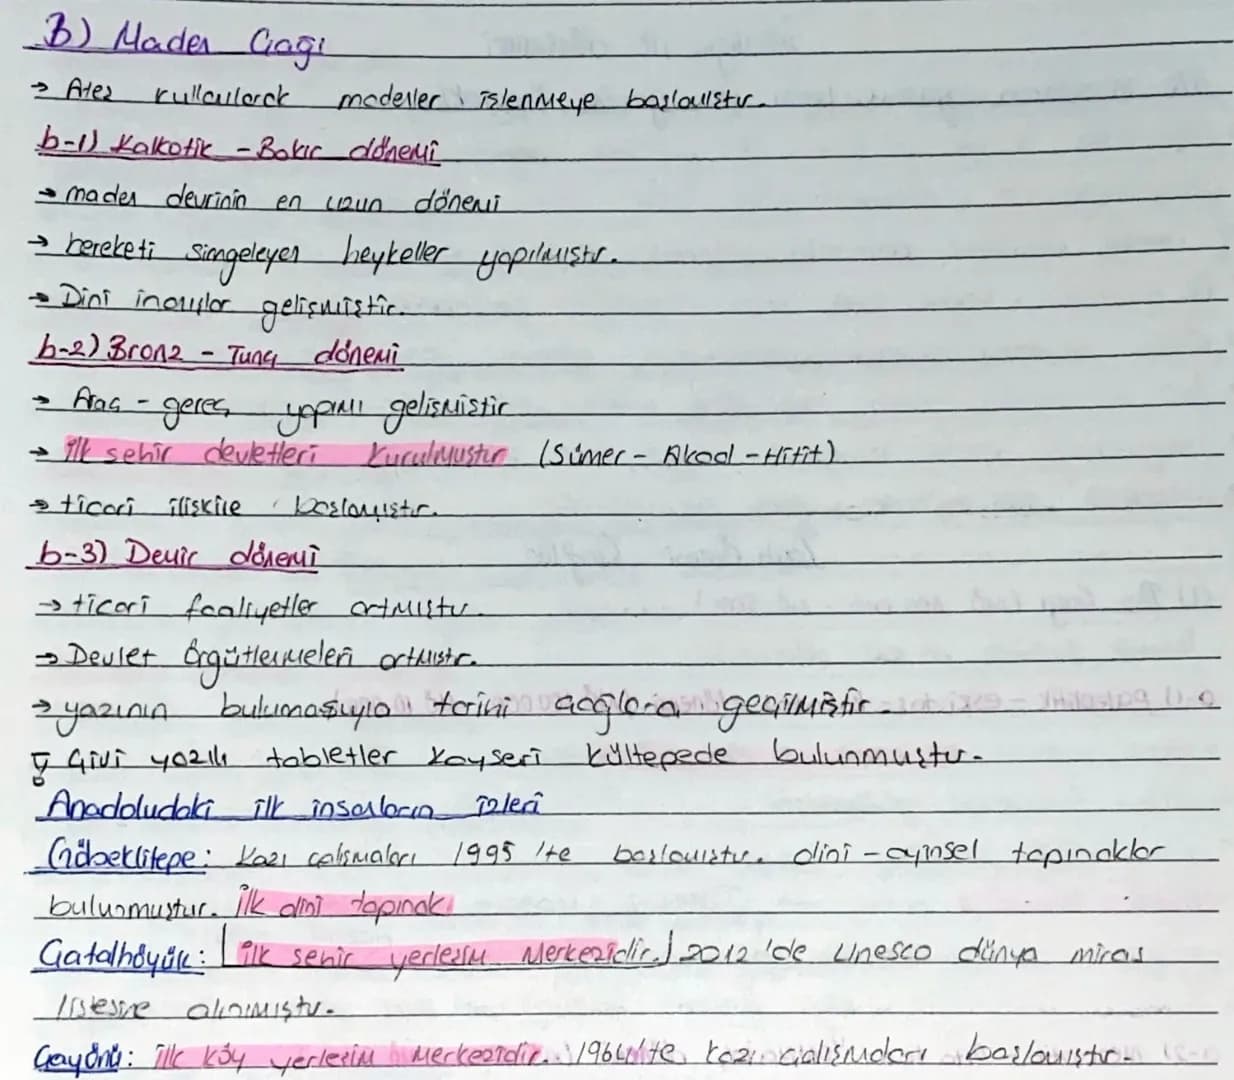 B) Maden Çağı
→ Ateş kullanılarak madenler işlenmeye başlanmıştır.
b-1) Kalkotik - Bakır dönemi
→ maden devrinin en uzun dönemi
→ bereketi simgeleyen heykeller yapılmıştır.
→ Dini inanışlar gelişmiştir.
b-2) Bronz - Tunç dönemi
→ Araç - gereç yapımı gelişmiştir
→ ilk şehir devletleri kurulmuştur (Sümer - Akad - Hitit)
→ ticari ilişkile başlamıştır.
b-3) Demir dönemi
→ ticari faaliyetler artmıştır.
→ Devlet örgütlenmeleri artmıştır.
→ yazının bulumasuyla tarihi çağlara geçilmiştir.
Çivi yazılı tabletler Kayseri Kültepede bulunmuştur.
Anadoludaki ilk insanların izleri
Göbeklitepe: Kazı çalışmaları 1995 'te başlamıştır. dini - ayinsel tapınaklar
bulunmuştur. İlk dini tapınak
Çatalhöyük: [ilk şehir yerleşim merkezidir.] 2012 'de Unesco dünya miras
listesine alınmıştır.
Çayönü: ilk köy yerleşim merkezidir. 1964'te kazı çalışmaları başlamıştır.